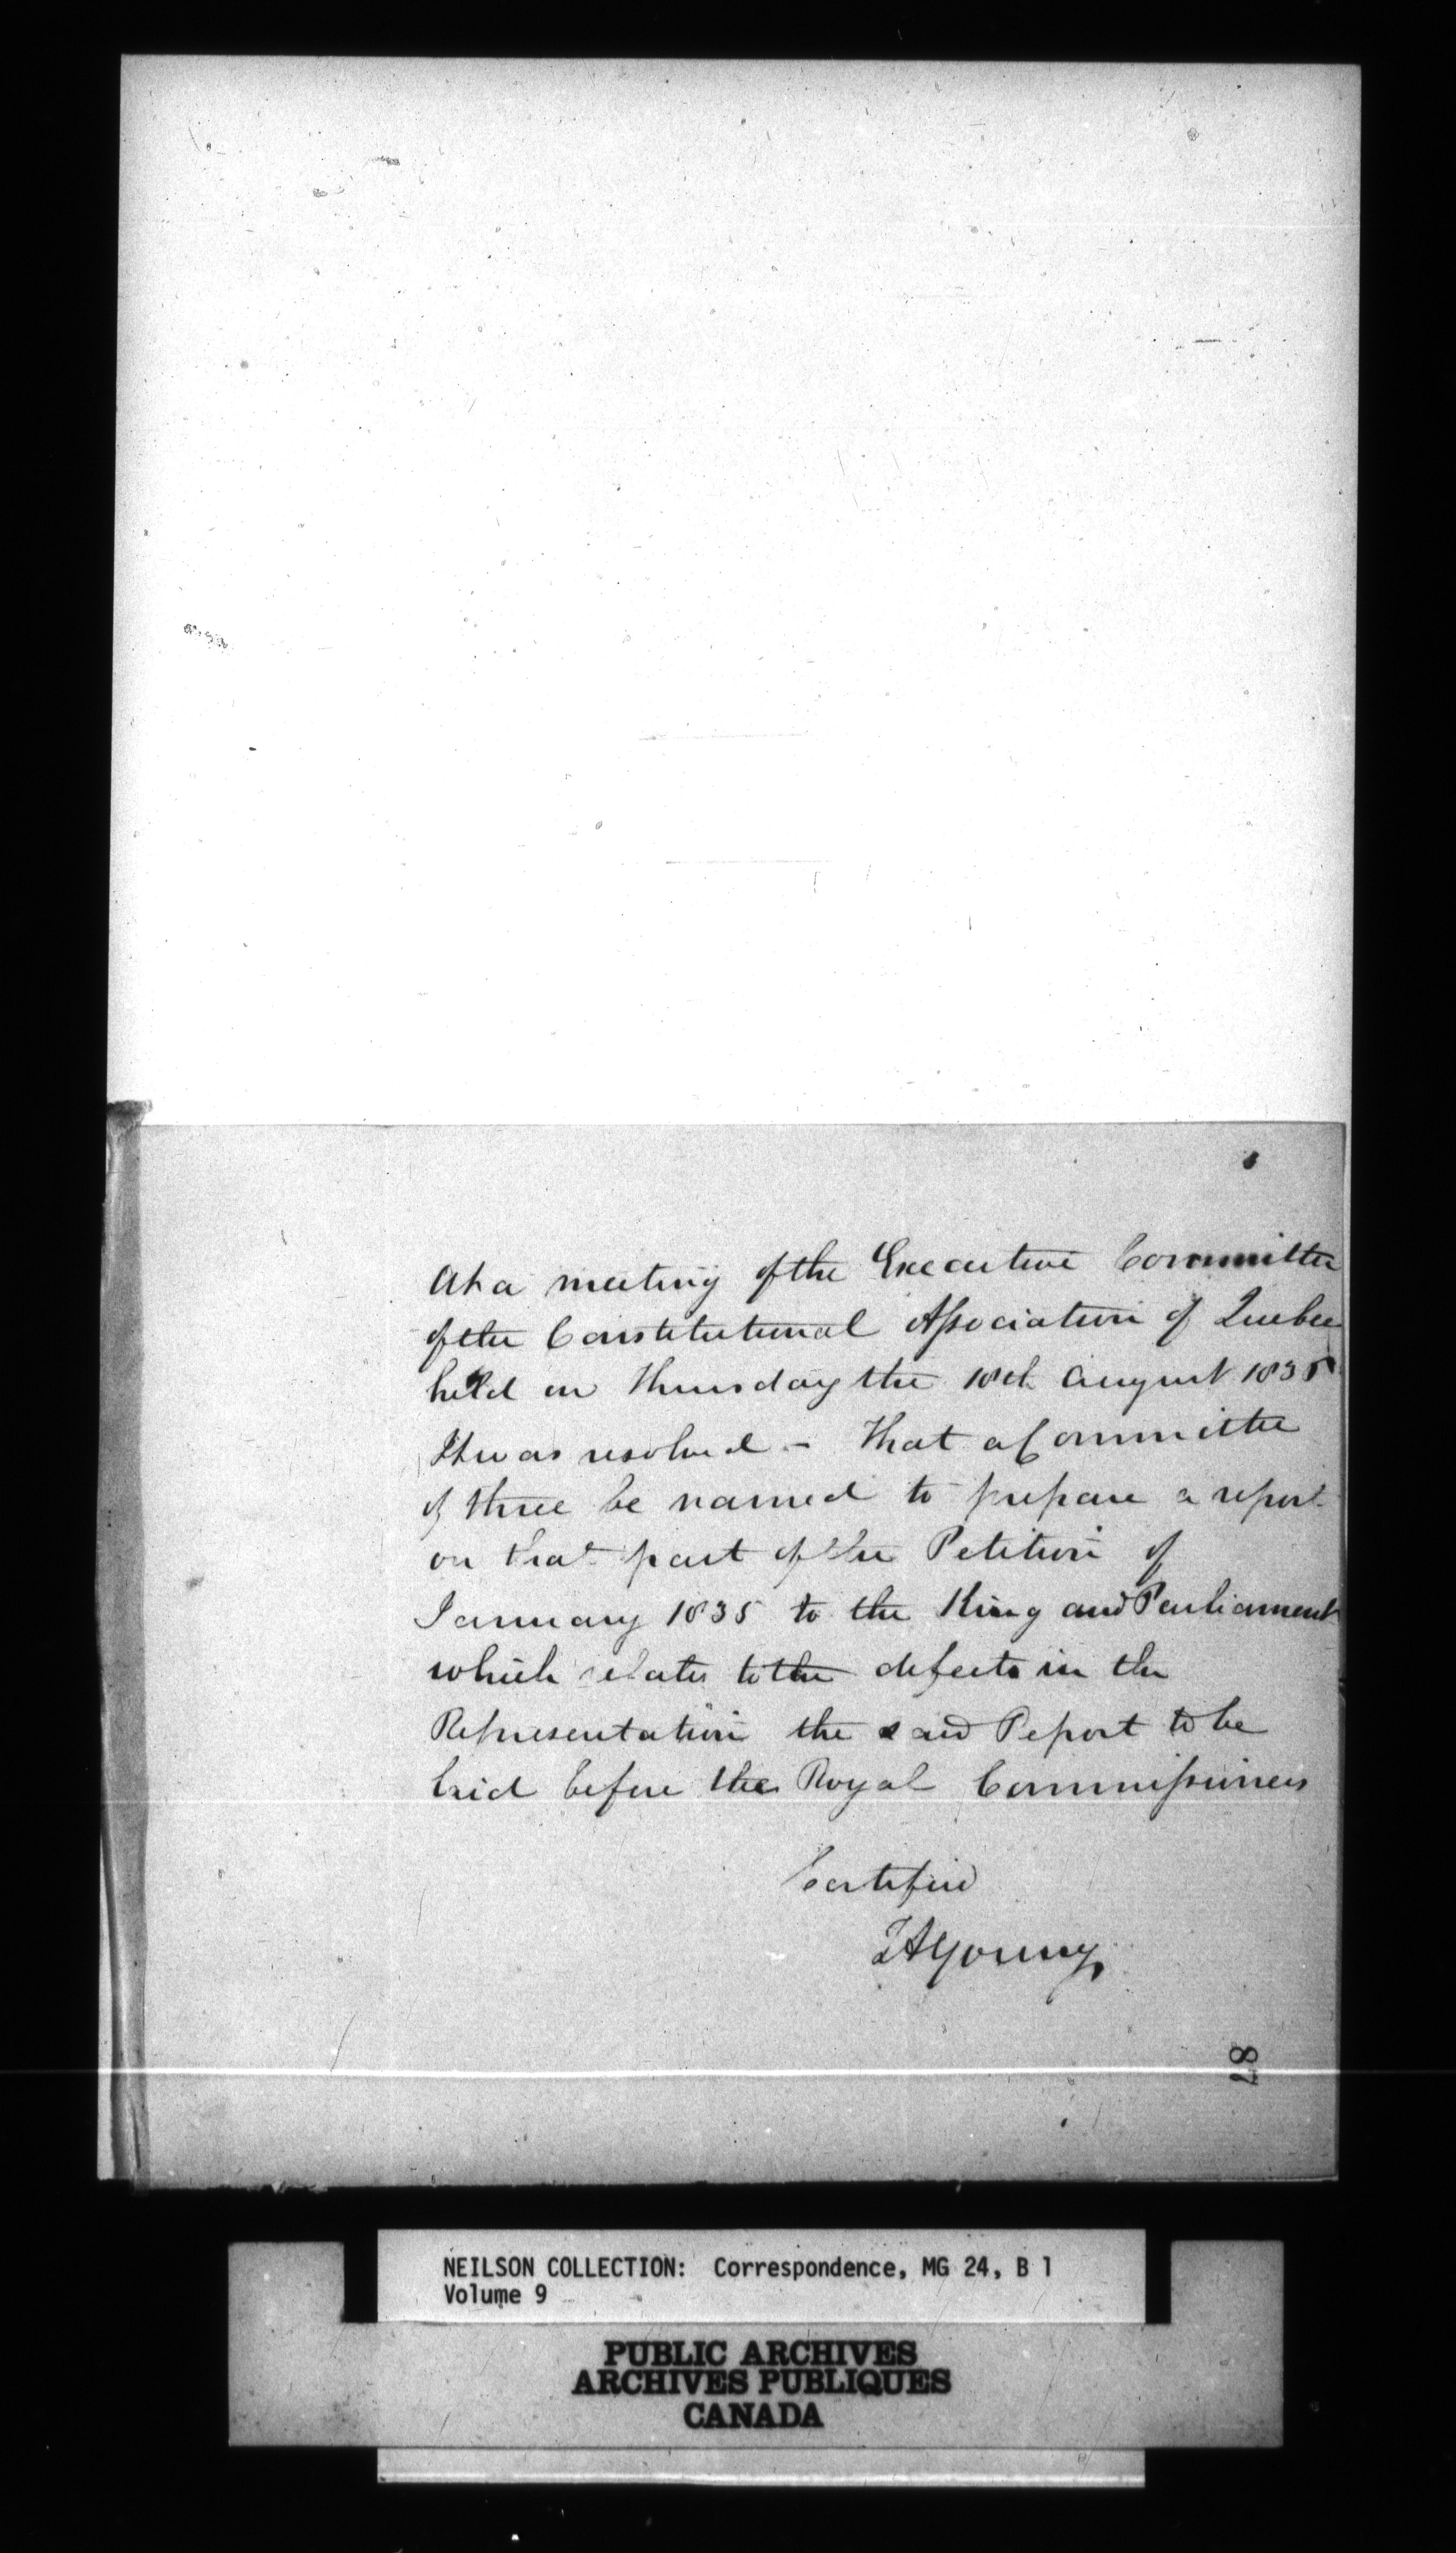 At a meeting of the Executive Committee
of the Constitutional Association of Quebec
held on Thursday the 18th August 1835
It was resolved - That a Committee
of three be named to prepare a report
on that part of the Petition of
January 1835 to the King and Parliament
which relates to the defects in the
Representation the said Report to be
laid before the Royal Commissioners
Certified
TAYoung
87
NEILSON COLLECTION: Correspondence, MG 24, B 1
Volume 9
PUBLIC ARCHIVES
ARCHIVES PUBLIQUES
CANADA